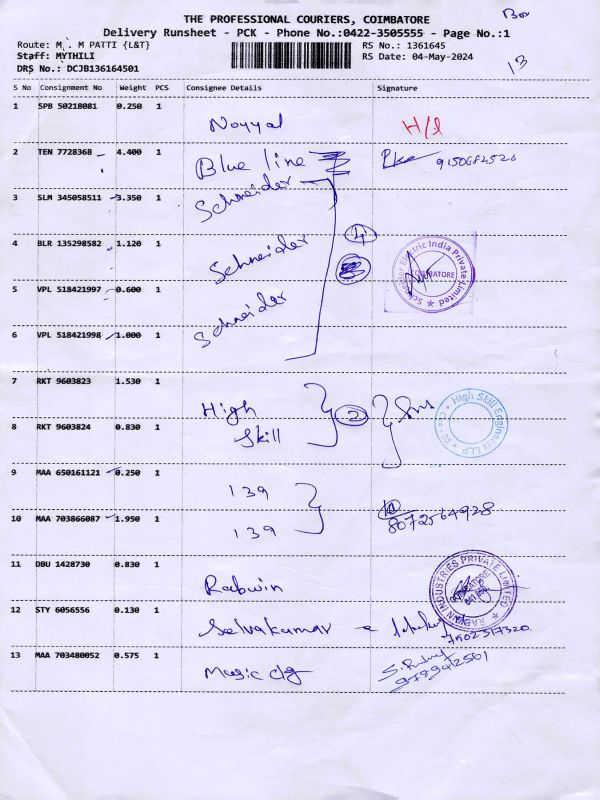 THE PROFESSIONAL COURIERS, COIMBATORE
Delivery Runsheet - PCK - Phone No.:0422-3505555 - Page No.:1
Route: M . M PATTI {L&T}
Staff: MYTHILI
DRS No.: DCJB136164501
RS No.: 1361645
RS Date: 04-May-2024
13
S No Consignment No Weight PCS Consignee Details Signature
1 SPB 50218081 0.250 1 Noyyal H/l
2 TEN 7728368 4.400 1 Blue line
3 SLM 345058511 3.350 1 Schneider
4 BLR 135298582 1.120 1 Schneider 4
Schneider Electric India Private Limited
COIMBATORE
5 VPL 518421997 0.600 1 Schneider
6 VPL 518421998 1.000 1
7 RKT 9603823 1.530 1 High 2
High Skill Engineers LLP
8 RKT 9603824 0.830 1 Skill
9 MAA 650161121 0.250 1 139
10 MAA 703866087 1.950 1 139 8072564928
11 DBU 1428730 0.830 1 Rabwin
INDUSTRIES PRIVATE LIMITED
12 STY 6056556 0.130 1 Selvakumar 7502517320
13 MAA 703480052 0.575 1 Magic